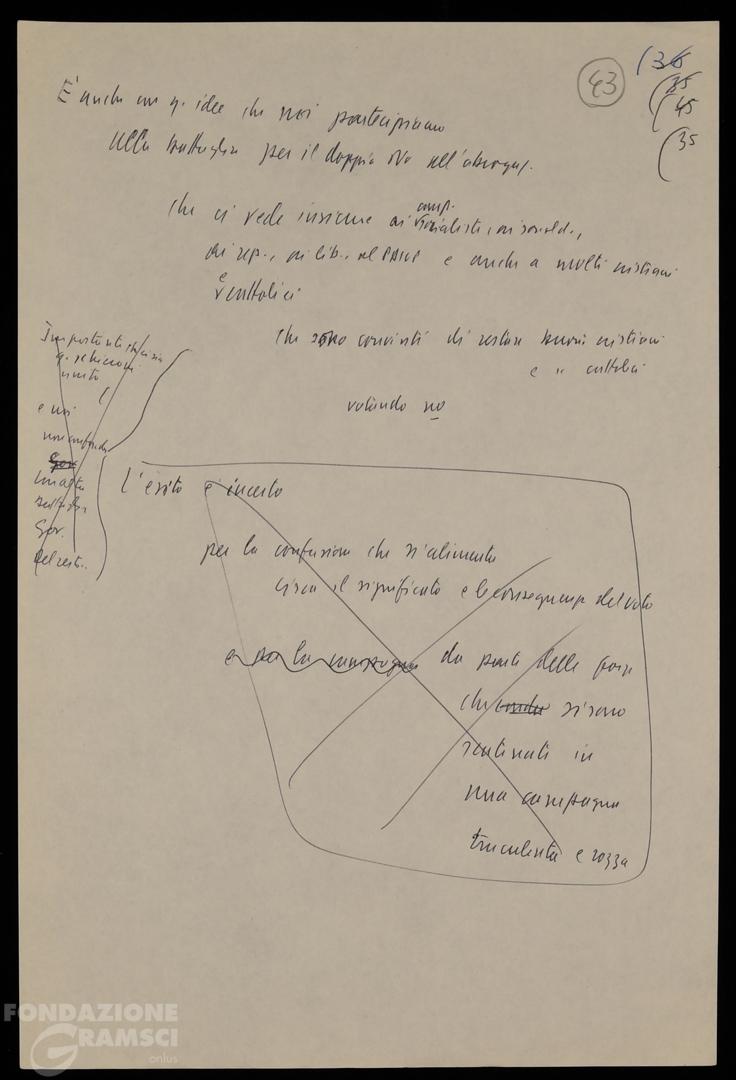 43
(36
(35
(45
(35
È anche con q. idee che noi partecipiamo
alla battaglia per il doppio No all'abrogaz.
che ci vede insieme ai comp. socialisti, ai socald.,
ai rep., ai lib., al PdUP e anche a molti cristiani
e cattolici
che sono convinti di restare buoni cristiani
e " cattolici
votando no
Importante
q. schieram.
unito
e noi
non confond.
Gov.
L'esito è incerto
per la confusione che s'alimenta
circa il significato e le conseguenze del voto
e per la campagna da parte delle forze
che si sono
scatenati in
una campagna
truculenta e rozza
FONDAZIONE
GRAMSCI
onlus